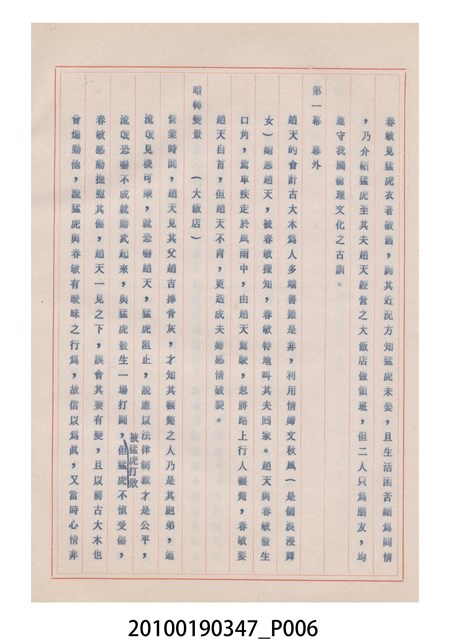 春敏見猛虎衣著敏舊，詢其近況方知猛虎未娶，且生活困苦頗為同情
，乃介紹猛虎至其夫趙天經營之大飯店做領班，但二人只為朋友，均
遵守我國倫理文化之古訓。
第一幕　幕外
趙天的會計古大本為人多端善搬是非，利用情婦文秋風（是個浪漫舞
女）媚惑趙天，被春敏探知，春敏特地叫其夫回家。趙天與春敏發生
口角，駕車疾走於風雨中，由趙天駕駛，忽將路上行人輾斃，春敏要
趙天自首，但趙天不肯，更造成夫婦感情破裂。
暗轉變景　（大飯店）
營業時間，趙天見其父趙吉捧骨灰，才知其輾斃之人乃是其親弟，這
流氓見機可乘，就恐嚇趙天，猛虎阻止，說應以法律制裁才是公平，
流氓恐嚇不成就動武起來，與猛虎發生一場打鬥，但猛虎不慎受傷，
被猛虎打敗
春敏感動撫慰其傷，趙天一見之下，誤會其妻有變，且以前古大本也
曾煽動他，說猛虎與春敏有曖昧之行為，故信以為真，又當時心情非
20100190347_P006